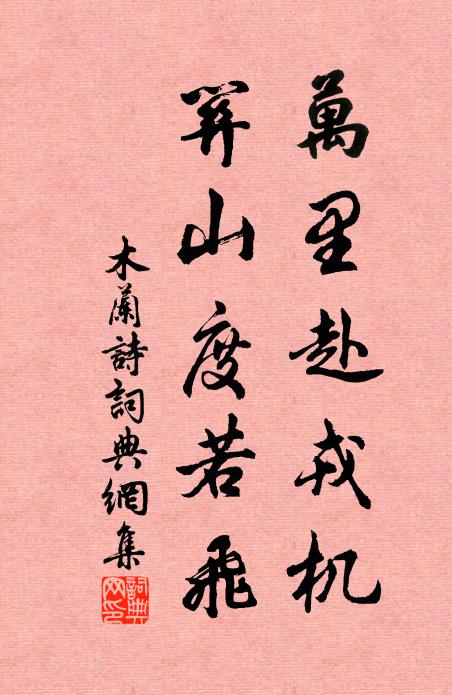 萬里赴戎机
關山度若飛
木蘭詩詞典網集
詞典网印